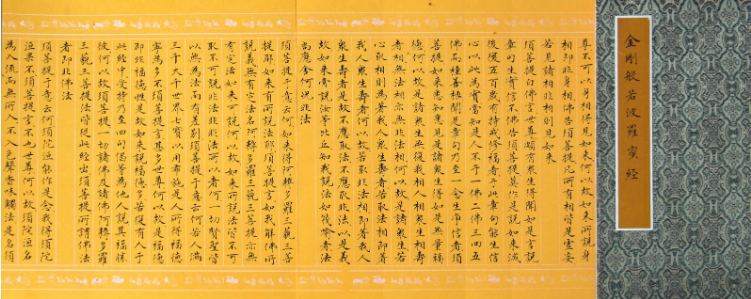 金剛般若波羅蜜經
尊不可以身相得見如來何以故如來所說身
相即非身相佛告須菩提凡所有相皆是虛妄
若見諸相非相則見如來
須菩提白佛言世尊頗有眾生得聞如是言說
章句生實信不佛告須菩提莫作是說如來滅
後後五百歲有持戒修福者於此章句能生信
心以此為實當知是人不於一佛二佛三四五
佛而種善根聞是章句乃至一念生淨信者須
菩提如來悉知悉見是諸眾生得如是無量福
德何以故是諸眾生無復我相人相眾生相壽
者相無法相亦無非法相何以故是諸眾生若
心取相則為著我人眾生壽者若取法相即著
我人眾生壽者何以故若取非法相即著我人
眾生壽者是故不應取法不應取非法以是義
故如來常說汝等比丘知我說法如筏喻者法
尚應捨何況非法
須菩提於意云何如來得阿耨多羅三藐三菩
提耶如來有所說法耶須菩提言如我解佛所
說義無有定法名阿耨多羅三藐三菩提亦無
有定法如來可說何以故如來所說法皆不可
取不可說非法非非法所以者何一切賢聖皆
以無為法而有差別須菩提於意云何若人滿
三千大千世界七寶以用布施是人所得福德
寧為多不須菩提言甚多世尊何以故是福德
即非福德性是故如來說福德多若復有人於
此經中受持乃至四句偈等為他人說其福勝
彼何以故須菩提一切諸佛及諸佛阿耨多羅
三藐三菩提法皆從此經出須菩提所謂佛法
者即非佛法
須菩提於意云何須陀洹能作是念我得須陀
洹果不須菩提言不也世尊何以故須陀洹名
為入流而無所入不入色聲香味觸法是名須